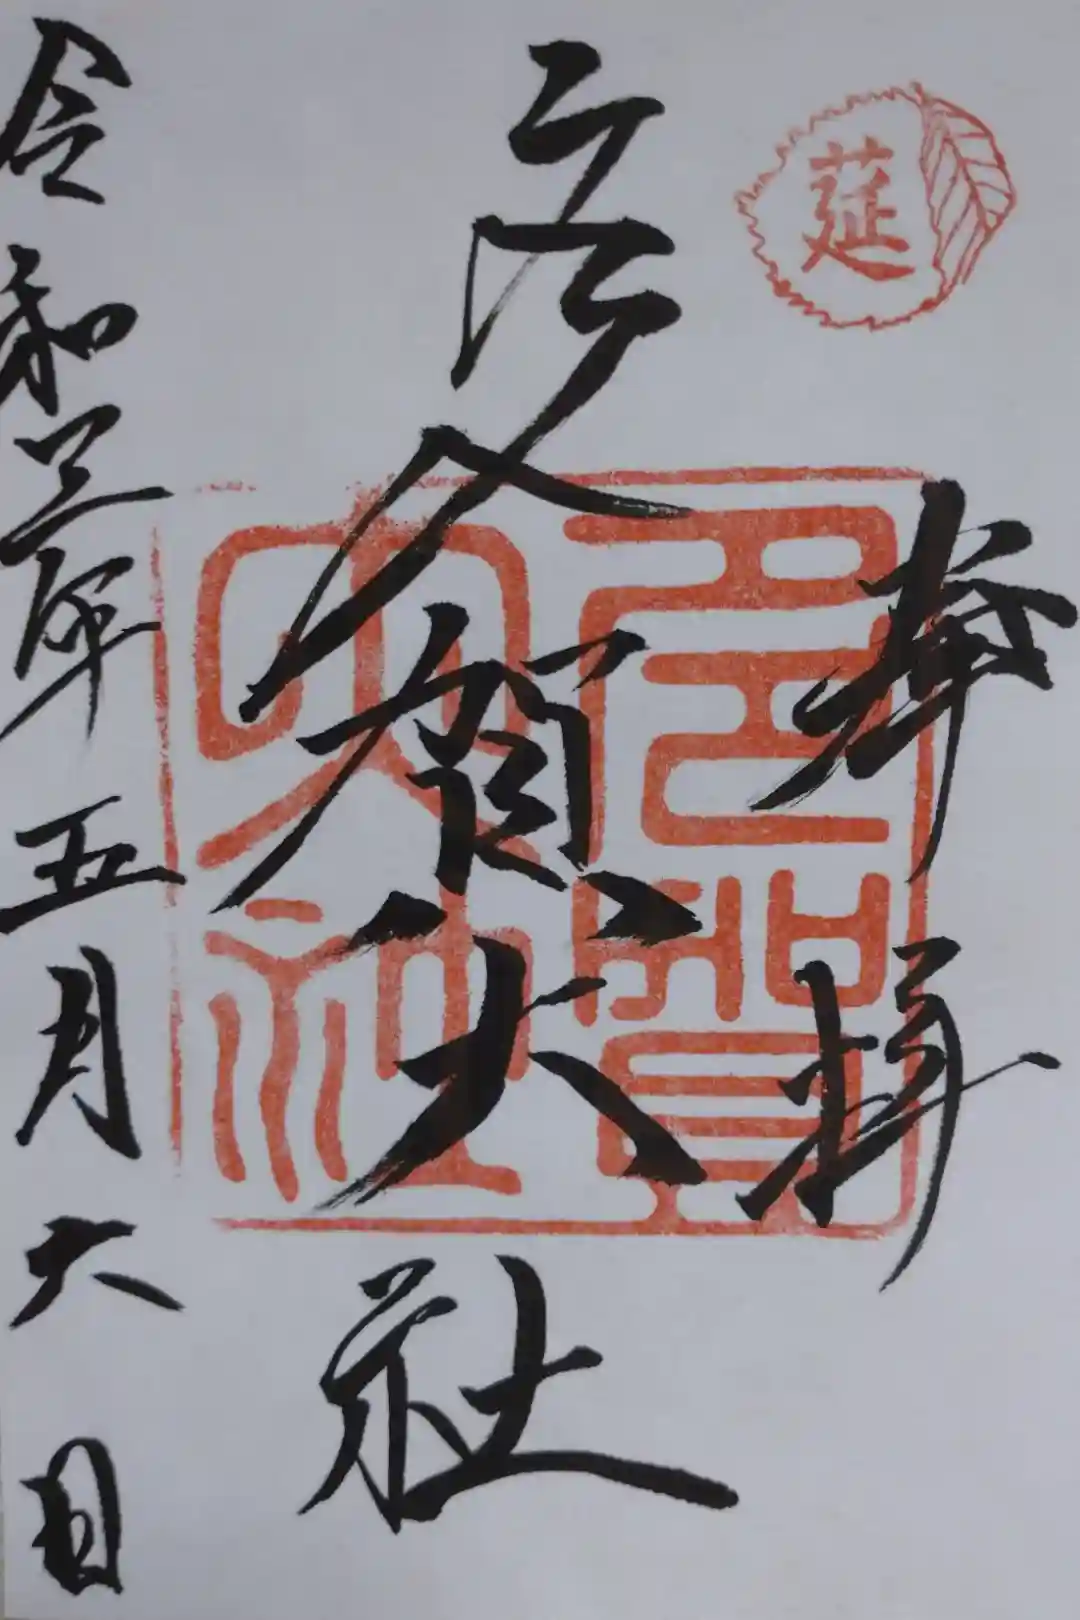 莚
奉拝
多賀大社
多賀大社
令和三年五月六日